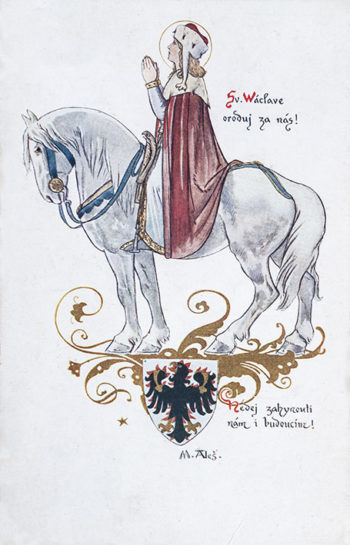 Sv. Václave
oroduj za nás!
Nedej zahynouti
nám i budoucím!
M. Aleš.